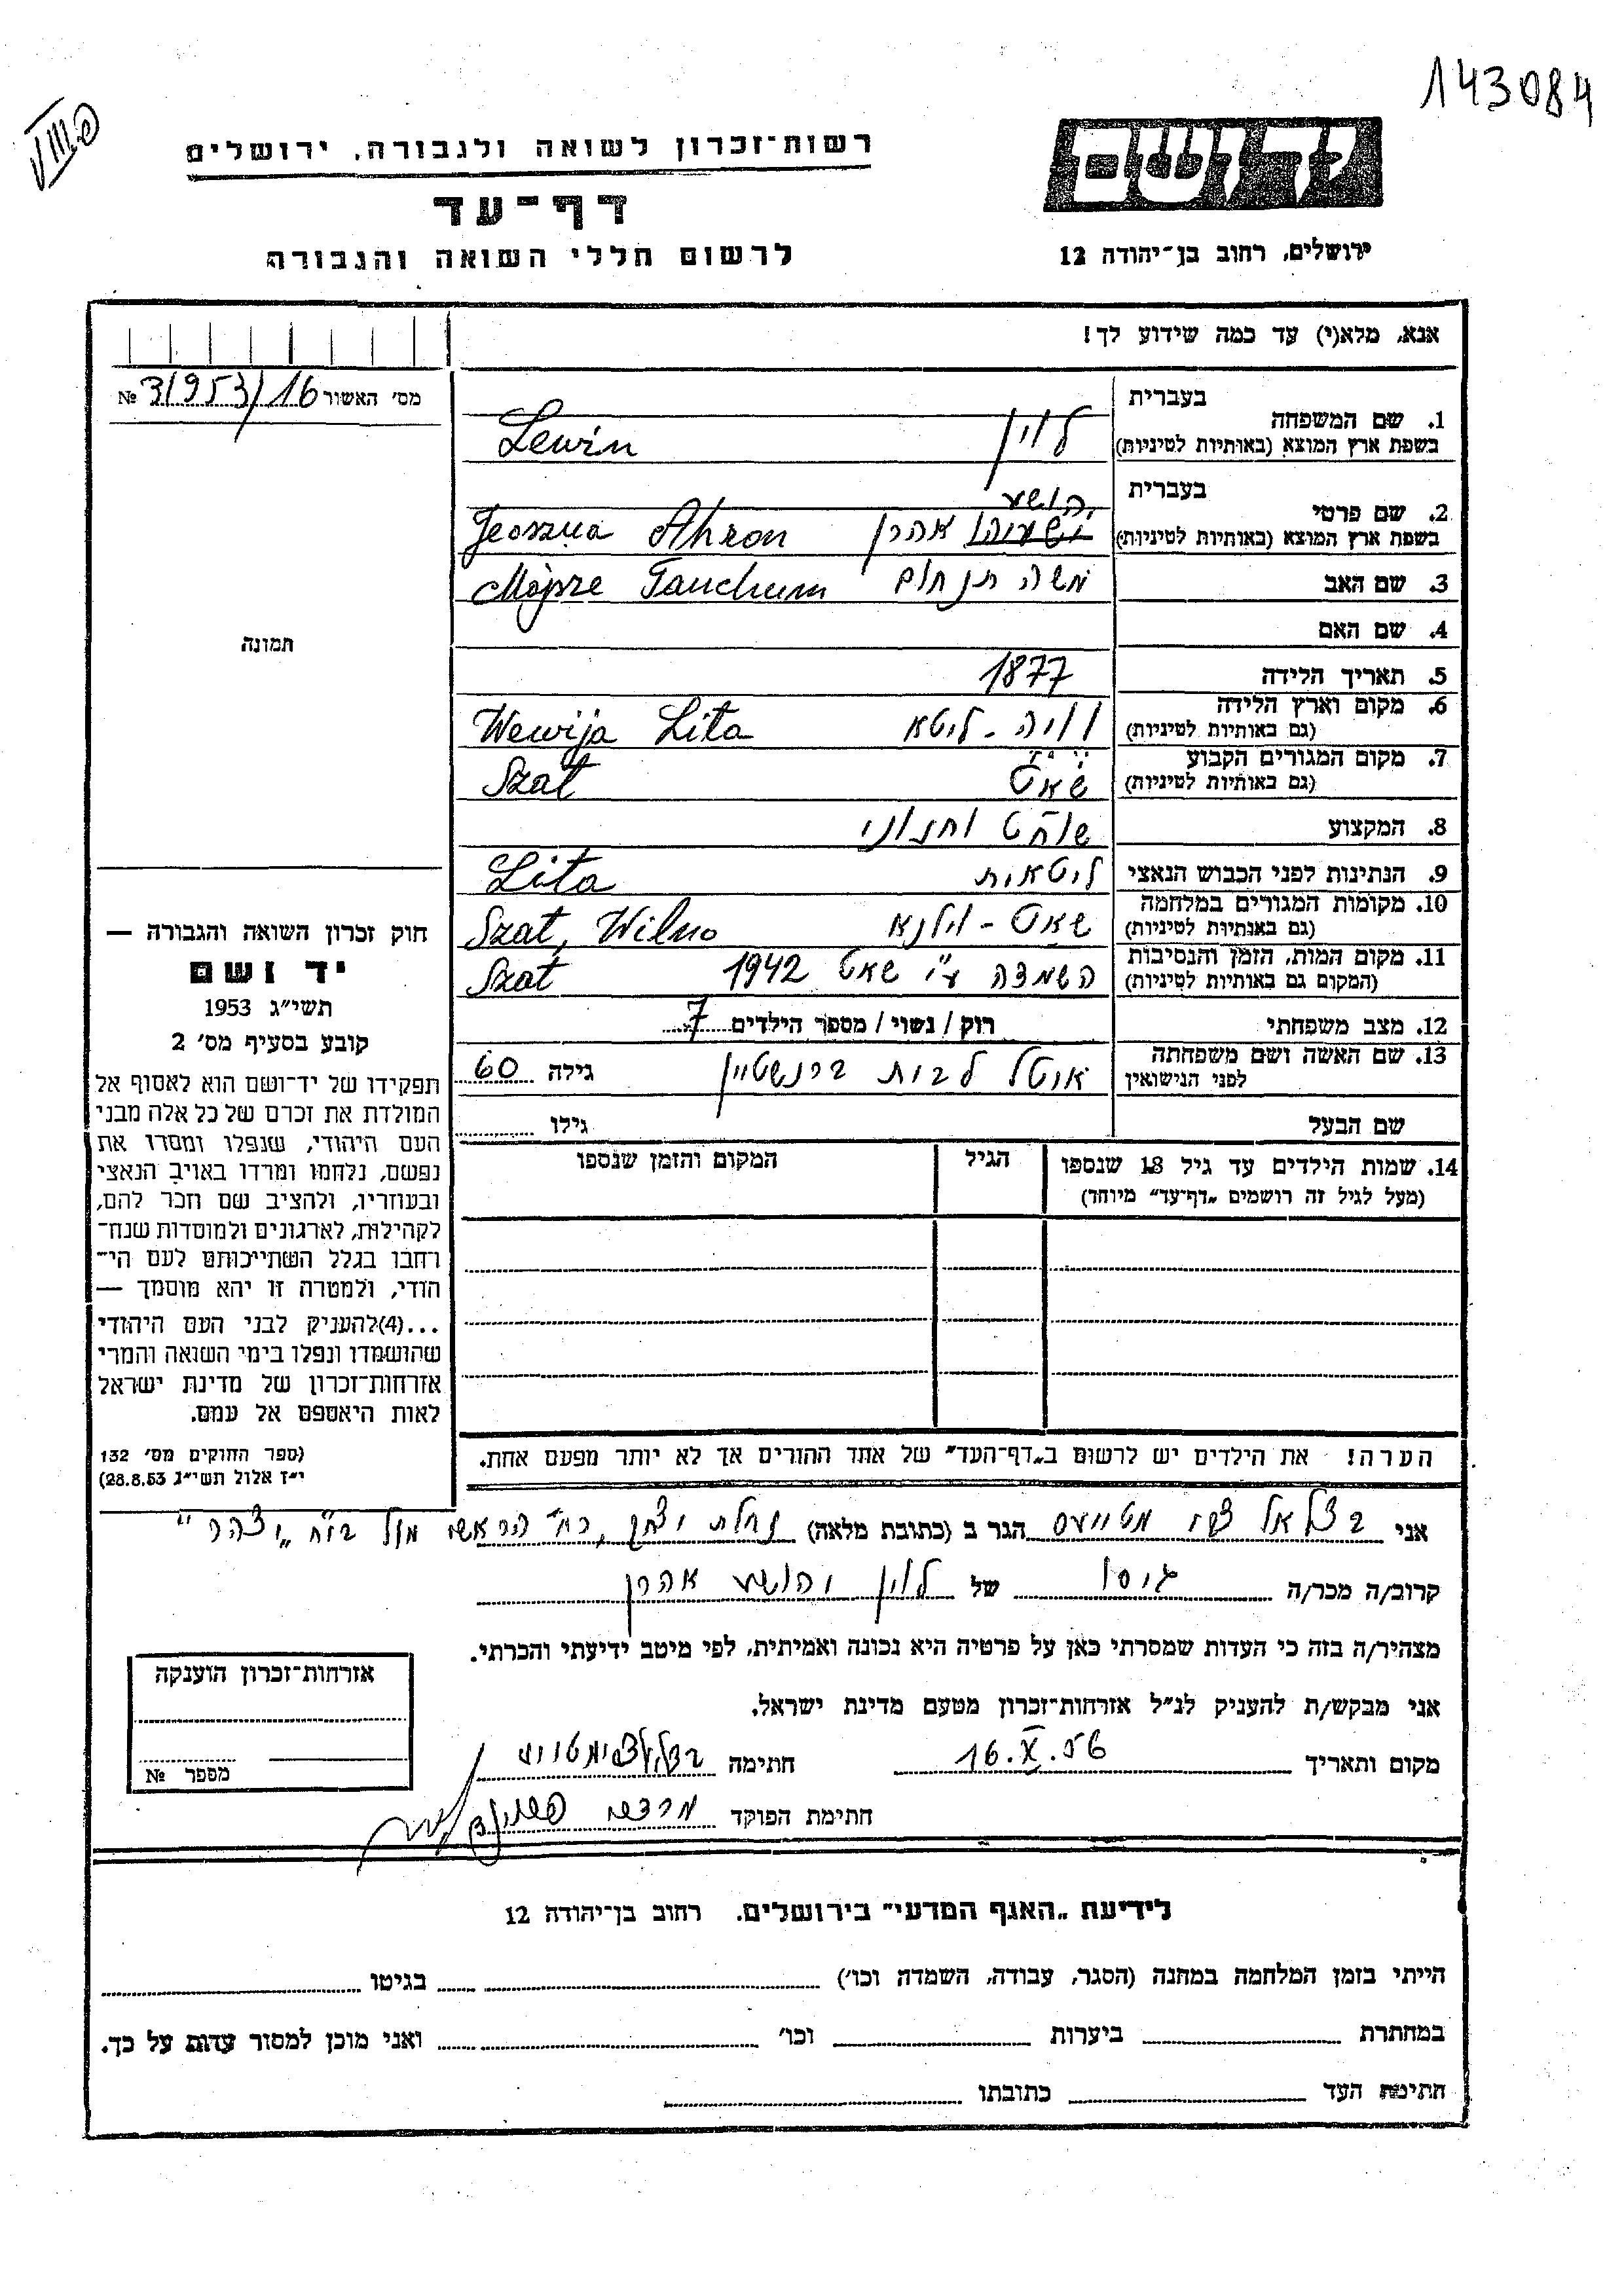 143084
רשות־זכרון לשואה ולגבורה, ירושלים
דף־עד
לרשום חללי השואה והגבורה
יד ושם
ירושלים, רחוב בן־יהודה 12
אנא, מלא(י) עד כמה שידוע לך!
מס׳ האשור 3/953/16 №
תמונה
בעברית
1. שם המשפחה לוין Lewin
בשפת ארץ המוצא (באותיות לטיניות)
בעברית יהושע
2. שם פרטי ישעיהו אהרן Jeoszua Ahron
בשפת ארץ המוצא (באותיות לטיניות)
3. שם האב משה תנחום Mojsze Tanchum
4. שם האם
5. תאריך הלידה 1877
6. מקום וארץ הלידה וויה - ליטא Wewija Lita
(גם באותיות לטיניות)
7. מקום המגורים הקבוע שאט Szat
(גם באותיות לטיניות)
8. המקצוע שוחט וחנוני
9. הנתינות לפני הכבוש הנאצי ליטאית Lita
10. מקומות המגורים במלחמה שאט - וילנא Szat, Wilno
(גם באותיות לטיניות)
11. מקום המות, הזמן והנסיבות השמדה ע״י שאט 1942 Szat
(המקום גם באותיות לטיניות)
12. מצב משפחתי רוק / נשוי / מספר הילדים 7
13. שם האשה ושם משפחתה לפני הנישואין לבית ברנשטיין גילה 60
שם הבעל גילו
14. שמות הילדים עד גיל 18 שנספו הגיל המקום והזמן שנספו
(מעל לגיל זה רושמים „דף־עד״ מיוחד)
הערה! את הילדים יש לרשום ב„דף־העד״ של אחד ההורים אך לא יותר מפעם אחת.
חוק זכרון השואה והגבורה —
יד ושם
תשי״ג 1953
קובע בסעיף מס׳ 2
תפקידו של יד־ושם הוא לאסוף אל
המולדת את זכרם של כל אלה מבני
העם היהודי, שנפלו ומסרו את
נפשם, נלחמו ומרדו באויב הנאצי
ובעוזריו, ולהציב שם וזכר להם,
לקהילות, לארגונים ולמוסדות שנח־
רבו בגלל השתייכותם לעם הי־
הודי, ולמטרה זו יהא מוסמך —
...(4)להעניק לבני העם היהודי
שהושמדו ונפלו בימי השואה והמרי
אזרחות־זכרון של מדינת ישראל
לאות היאספם אל עמם.
(ספר החוקים מס׳ 132
י״ז אלול תשי״ג 28.8.53)
אני בצלאל צבי הגר ב (כתובת מלאה) נחלת יצחק, רח׳ הראשי מול „יצהר״
קרוב/ה מכר/ה גיסו של לוין יהושע אהרן
מצהיר/ה בזה כי העדות שמסרתי כאן על פרטיה היא נכונה ואמיתית, לפי מיטב ידיעתי והכרתי.
אני מבקש/ת להעניק לנ״ל אזרחות־זכרון מטעם מדינת ישראל.
מקום ותאריך 16.X.56 חתימה
חתימת הפוקד
אזרחות־זכרון הוענקה
מספר №
לידיעת „האגף המדעי״ בירושלים. רחוב בן־יהודה 12
הייתי בזמן המלחמה במחנה (הסגר, עבודה, השמדה וכו׳) בגיטו
במחתרת ביערות וכו׳ ואני מוכן למסור עדות על כך.
חתימת העד כתובתו